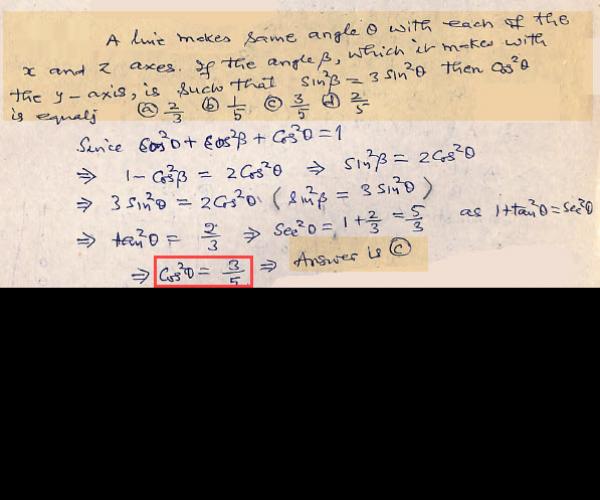 A line makes same angle θ with each of the
x and z axes. If the angle β, which it makes with
the y-axis, is such that sin²β = 3 sin²θ then cos²θ
is equals ⓐ 2/3 ⓑ 1/5 ⓒ 3/5 ⓓ 2/5
Since Cos²θ + Cos²β + Cos²θ = 1
⇒ 1 - Cos²β = 2Cos²θ ⇒ Sin²β = 2Cos²θ
⇒ 3 Sin²θ = 2Cos²θ (Sin²β = 3 Sin²θ)
⇒ tan²θ = 2/3 ⇒ Sec²θ = 1 + 2/3 = 5/3 as 1+tan²θ = Sec²θ
⇒ Cos²θ = 3/5 ⇒ Answer is ⓒ